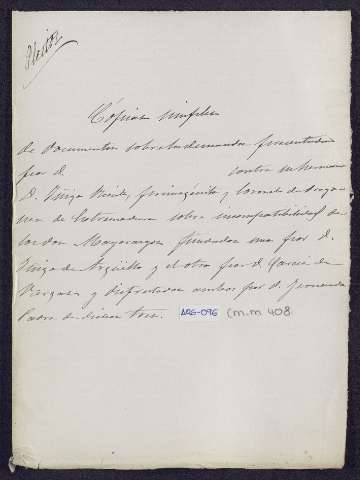 Pleitos
Cópias simples
de documentos sobre la demanda presentada
por D. contra su hermano
D. Iñigo primogénito y Coronel de Drago
nes de Extremadura sobre incompatibilidad de
los dos Mayorazgos fundados uno por D.
Iñigo de Argüello y el otro por D. Garcia de
Vargas y disfrutados ambos por D. Fernando
Padre de dichos tres. 106-096 (m.m 408.